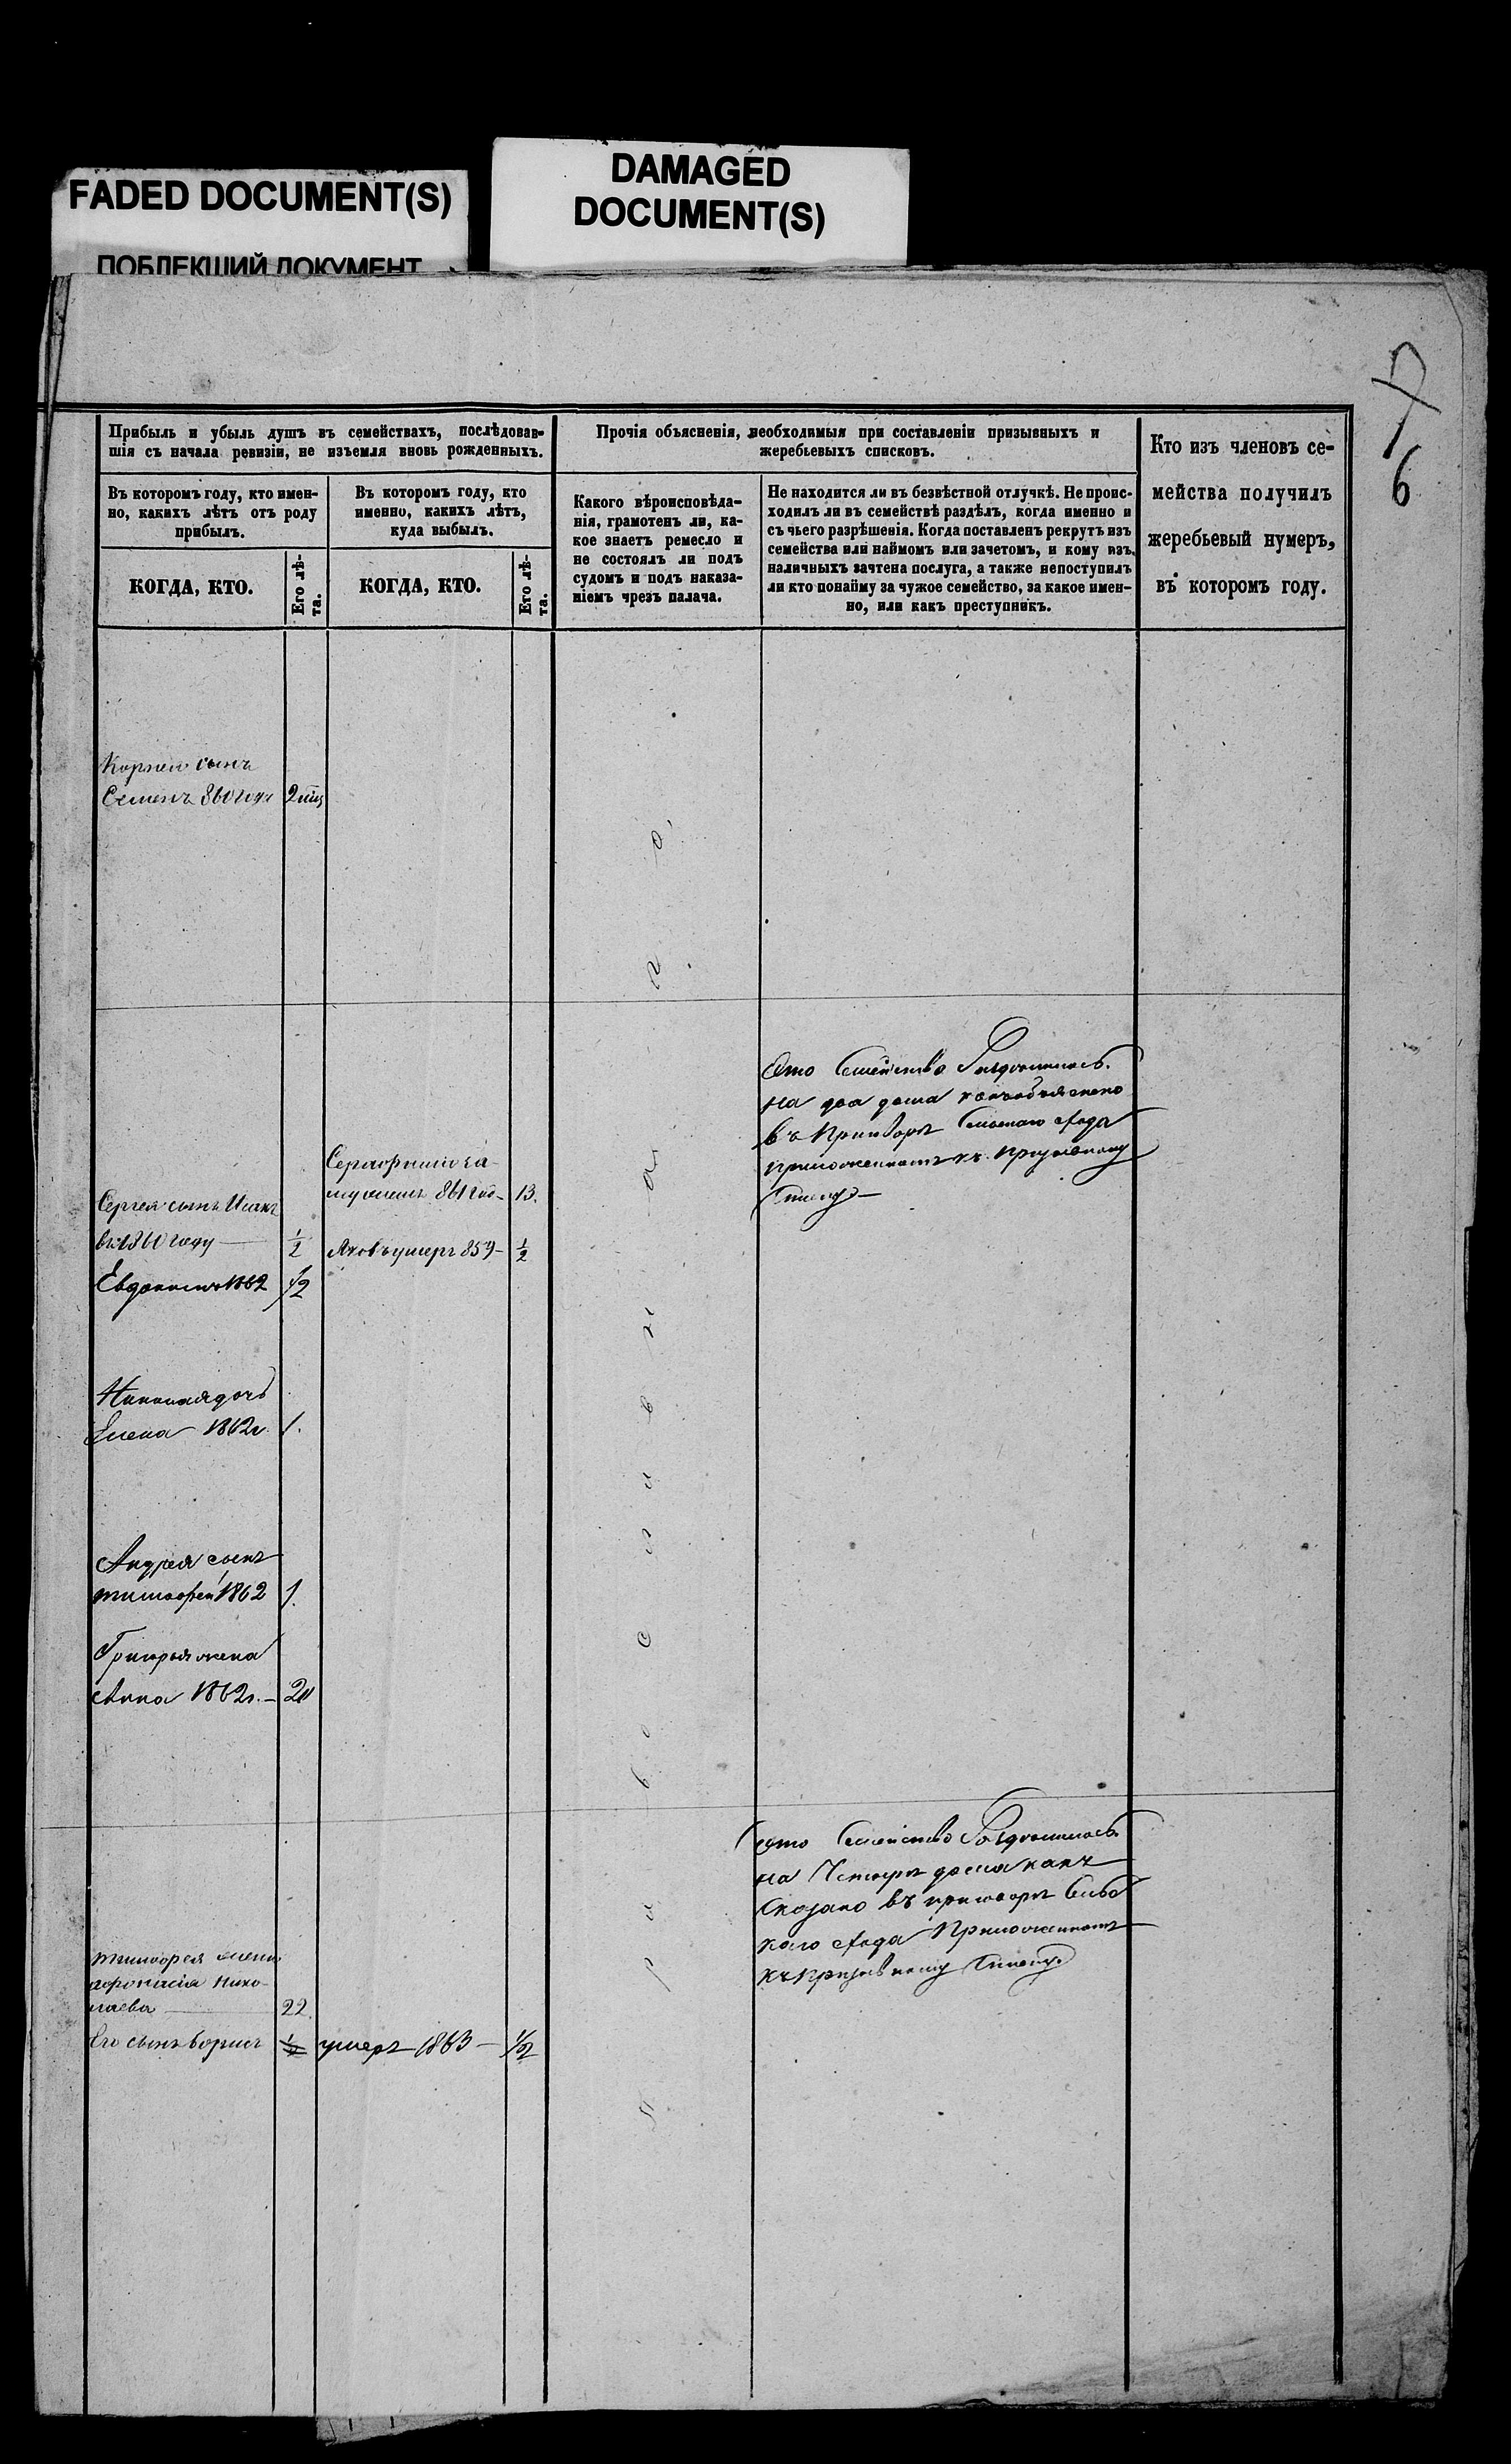 FADED DOCUMENT(S)
ПОБЛЕКШИЙ ДОКУМЕНТ
DAMAGED
DOCUMENT(S)
7
6
Прибыль и убыль душъ въ семействахъ, послѣдовав-
шія съ начала ревизіи, не изъемля вновь рожденныхъ.
Въ которомъ году, кто имен-
но, какихъ лѣтъ отъ роду
прибылъ.
КОГДА, КТО.
Его лѣ-
та.
Въ которомъ году, кто
именно, какихъ лѣтъ,
куда выбылъ.
КОГДА, КТО.
Его лѣ-
та.
Прочія объясненія, необходимыя при составленіи призывныхъ и
жеребьевыхъ списковъ.
Какого вѣроисповѣда-
нія, грамотенъ ли, ка-
кое знаетъ ремесло и
не состоялъ ли подъ
судомъ и подъ наказа-
ніемъ чрезъ палача.
Не находится ли въ безвѣстной отлучкѣ. Не проис-
ходилъ ли въ семействѣ раздѣлъ, когда именно и
съ чьего разрѣшенія. Когда поставленъ рекрутъ изъ
семейства или наймомъ или зачетомъ, и кому изъ
наличныхъ зачтена послуга, а также непоступилъ
ли кто понайму за чужое семейство, за какое имен-
но, или какъ преступникъ.
Кто изъ членовъ се-
мейства получилъ
жеребьевый нумеръ,
въ которомъ году.
Корнея сынъ
Семенъ 860 года
Православнаго
Это Семейство Раздѣлилось
на два дома какъ объяснено
въ Приговорѣ Сельскаго схода
приложенномъ къ Призывному
Списку
за
мужемъ 861 год 13.
Сергея сынъ Исакъ
въ 1860 году 1/2
Яковъ умеръ 859 1/2
Евдокимъ 1862 1/2
Николая дочь
Елена 1862г. 1.
Андрея сынъ
тимофей 1862 1.
Григорья жена
Анна 1862г. 20
Это Семейство Раздѣлилось
на Четыре дома какъ
Сказано въ приговорѣ Сельс
каго схода Приложенномъ
къ Призывному Списку
тимофея жена
афонасія Нико-
лаева 22
Его сынъ борисъ 1/2 умеръ 1863 1/2